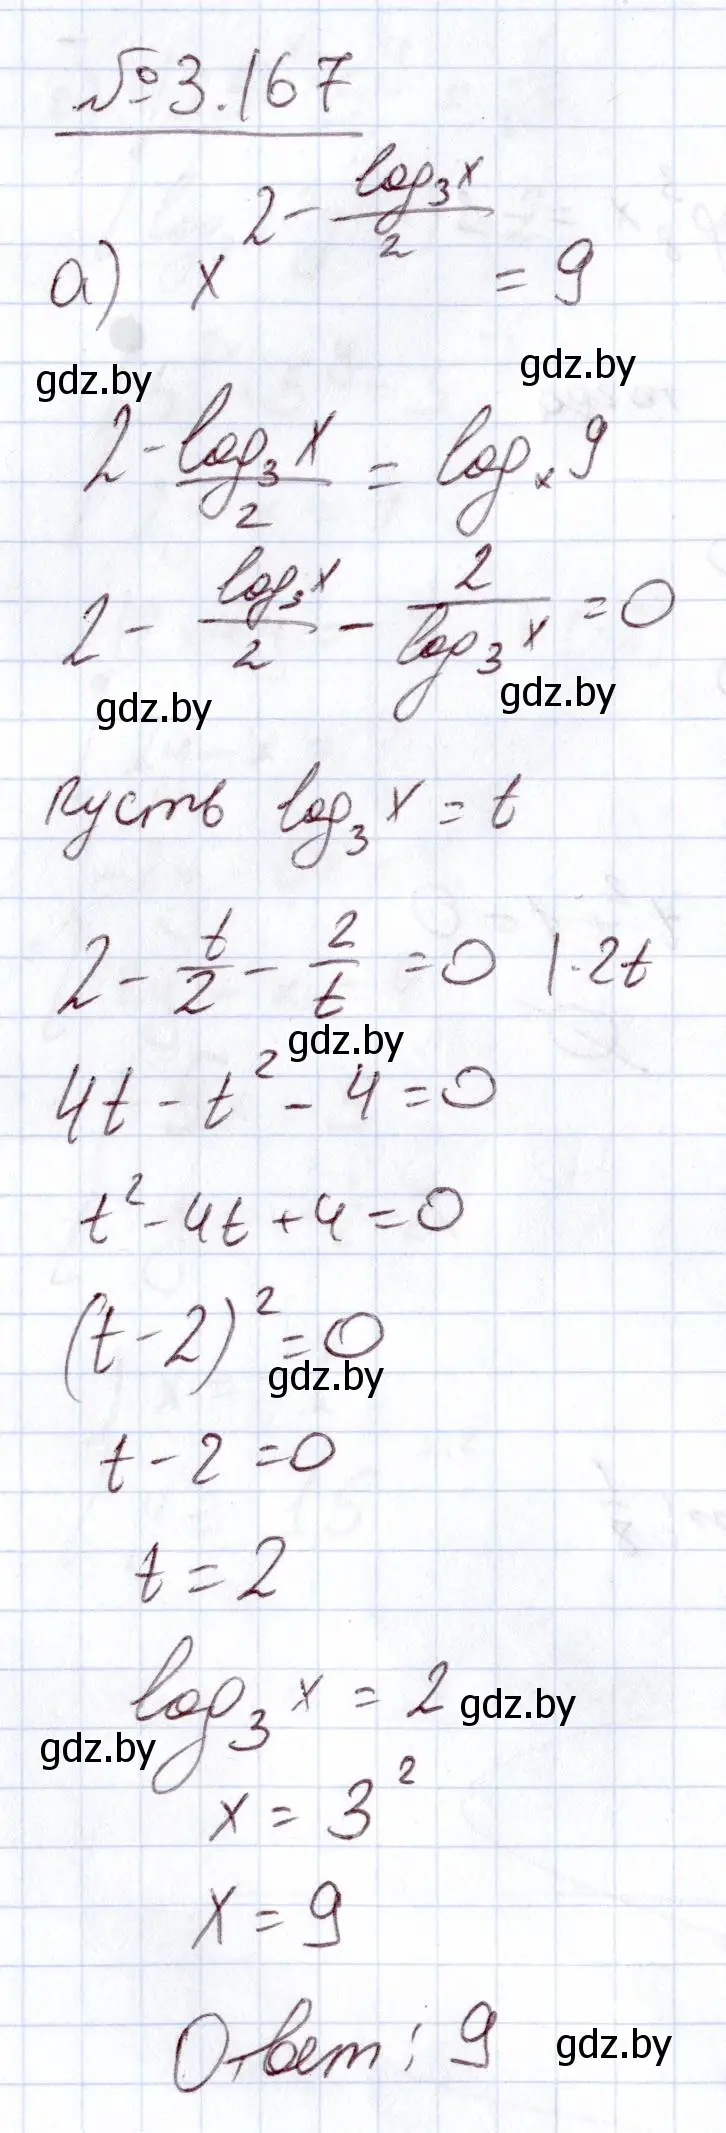 №3.167
а) x^{2 - \frac{log_3 x}{2}} = 9
gdz.by gdz.by
2 - \frac{log_3 x}{2} = log_x 9
2 - \frac{log_3 x}{2} - \frac{2}{log_3 x} = 0
gdz.by gdz.by
пусть log_3 x = t
2 - \frac{t}{2} - \frac{2}{t} = 0 |·2t
gdz.by
4t - t² - 4 = 0
t² - 4t + 4 = 0
(t - 2)² = 0
gdz.by
t - 2 = 0
t = 2
log_3 x = 2 gdz.by
gdz.by
x = 3²
x = 9
Ответ: 9 gdz.by